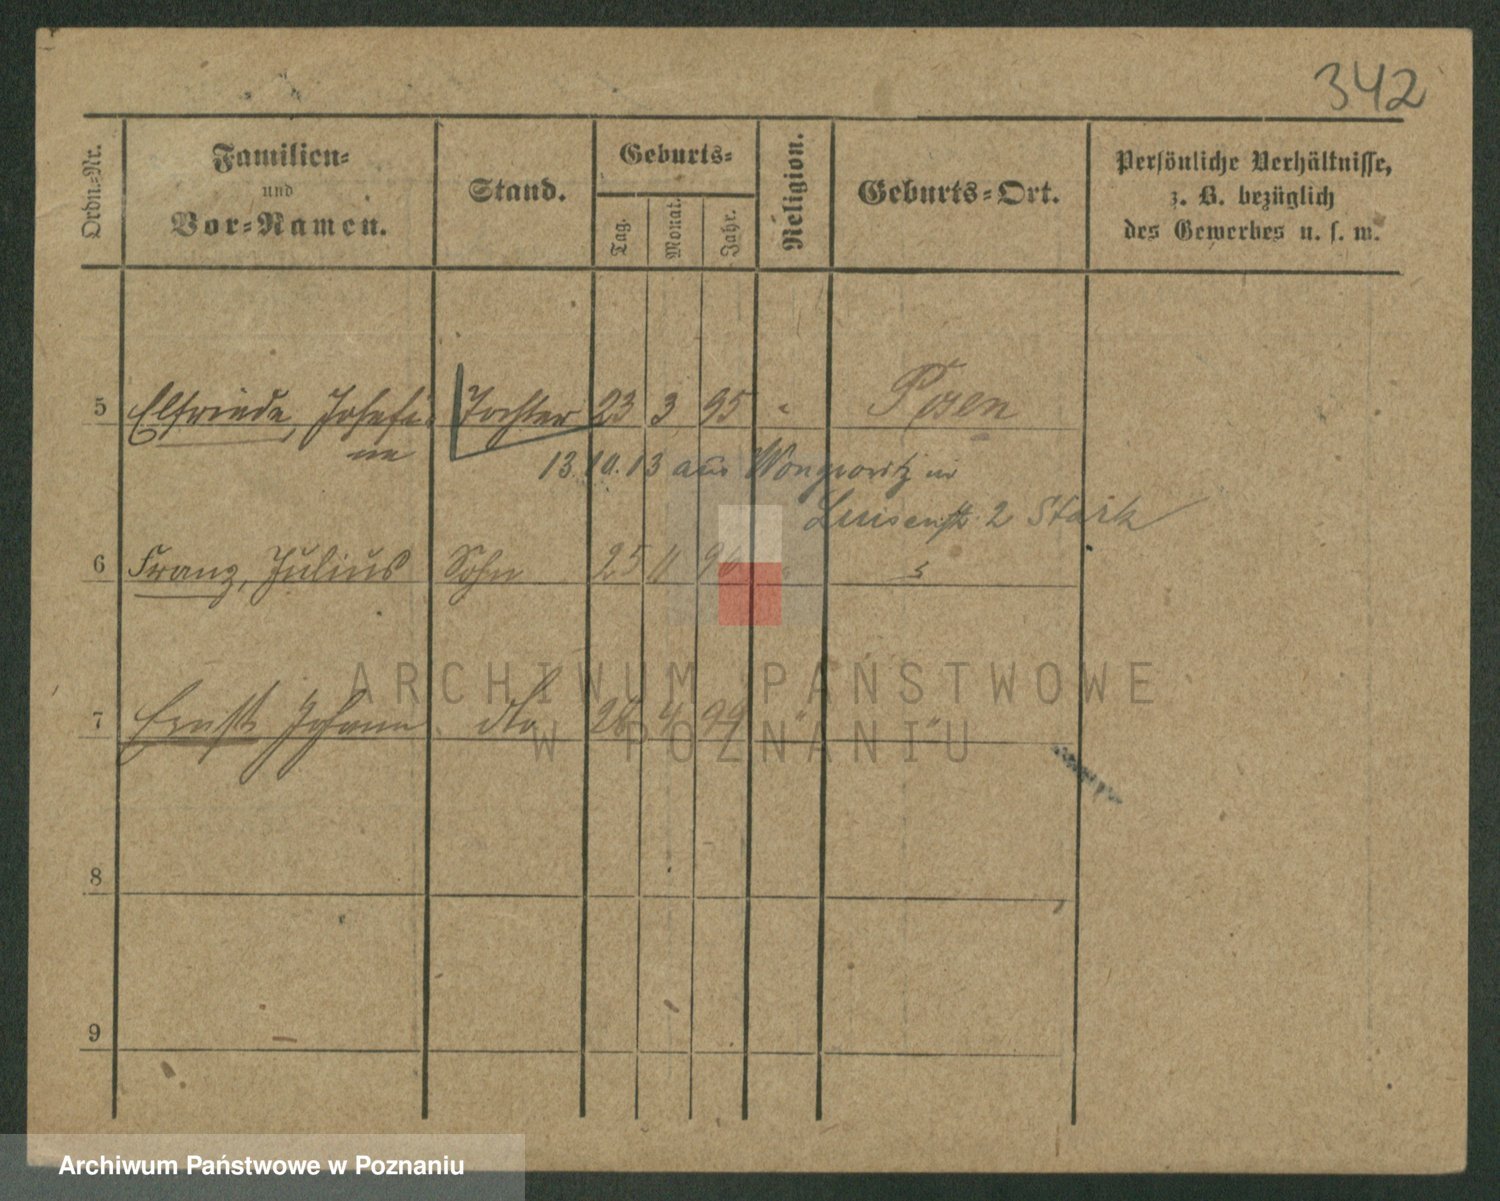 342
Ordn.-Nr.
Familien-
und
Vor-Namen.
Stand.
Geburts-
Tag.
Monat.
Jahr.
Religion.
Geburts-Ort.
Persönliche Verhältnisse,
z. B. bezüglich
des Gewerbes u. s. w.
5 Elfriede, Josefi- Tochter 23 3 95 " Posen
ne
13.10.13 aus Wongrowitz in
Luisenstr. 2 Stark
6 Franz, Julius Sohn 25 11 96 " "
7 Ernst Johann dto 28 4 99 " "
8
9
ARCHIWUM PAŃSTWOWE
W POZNANIU
Archiwum Państwowe w Poznaniu